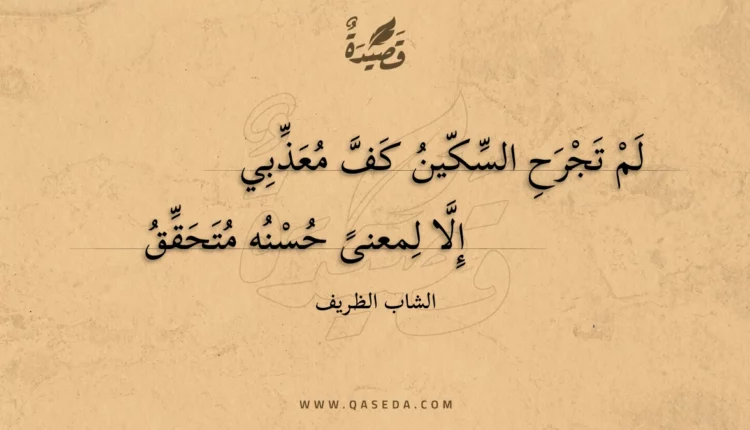 قَصِيْدَةٌ
لَمْ تَجْرَحِ السِّكّينُ كَفَّ مُعَذِّبِي
إِلَّا لِمعنىً حُسْنُه مُتَحَقِّقُ
الشاب الظريف
WWW.QASEDA.COM